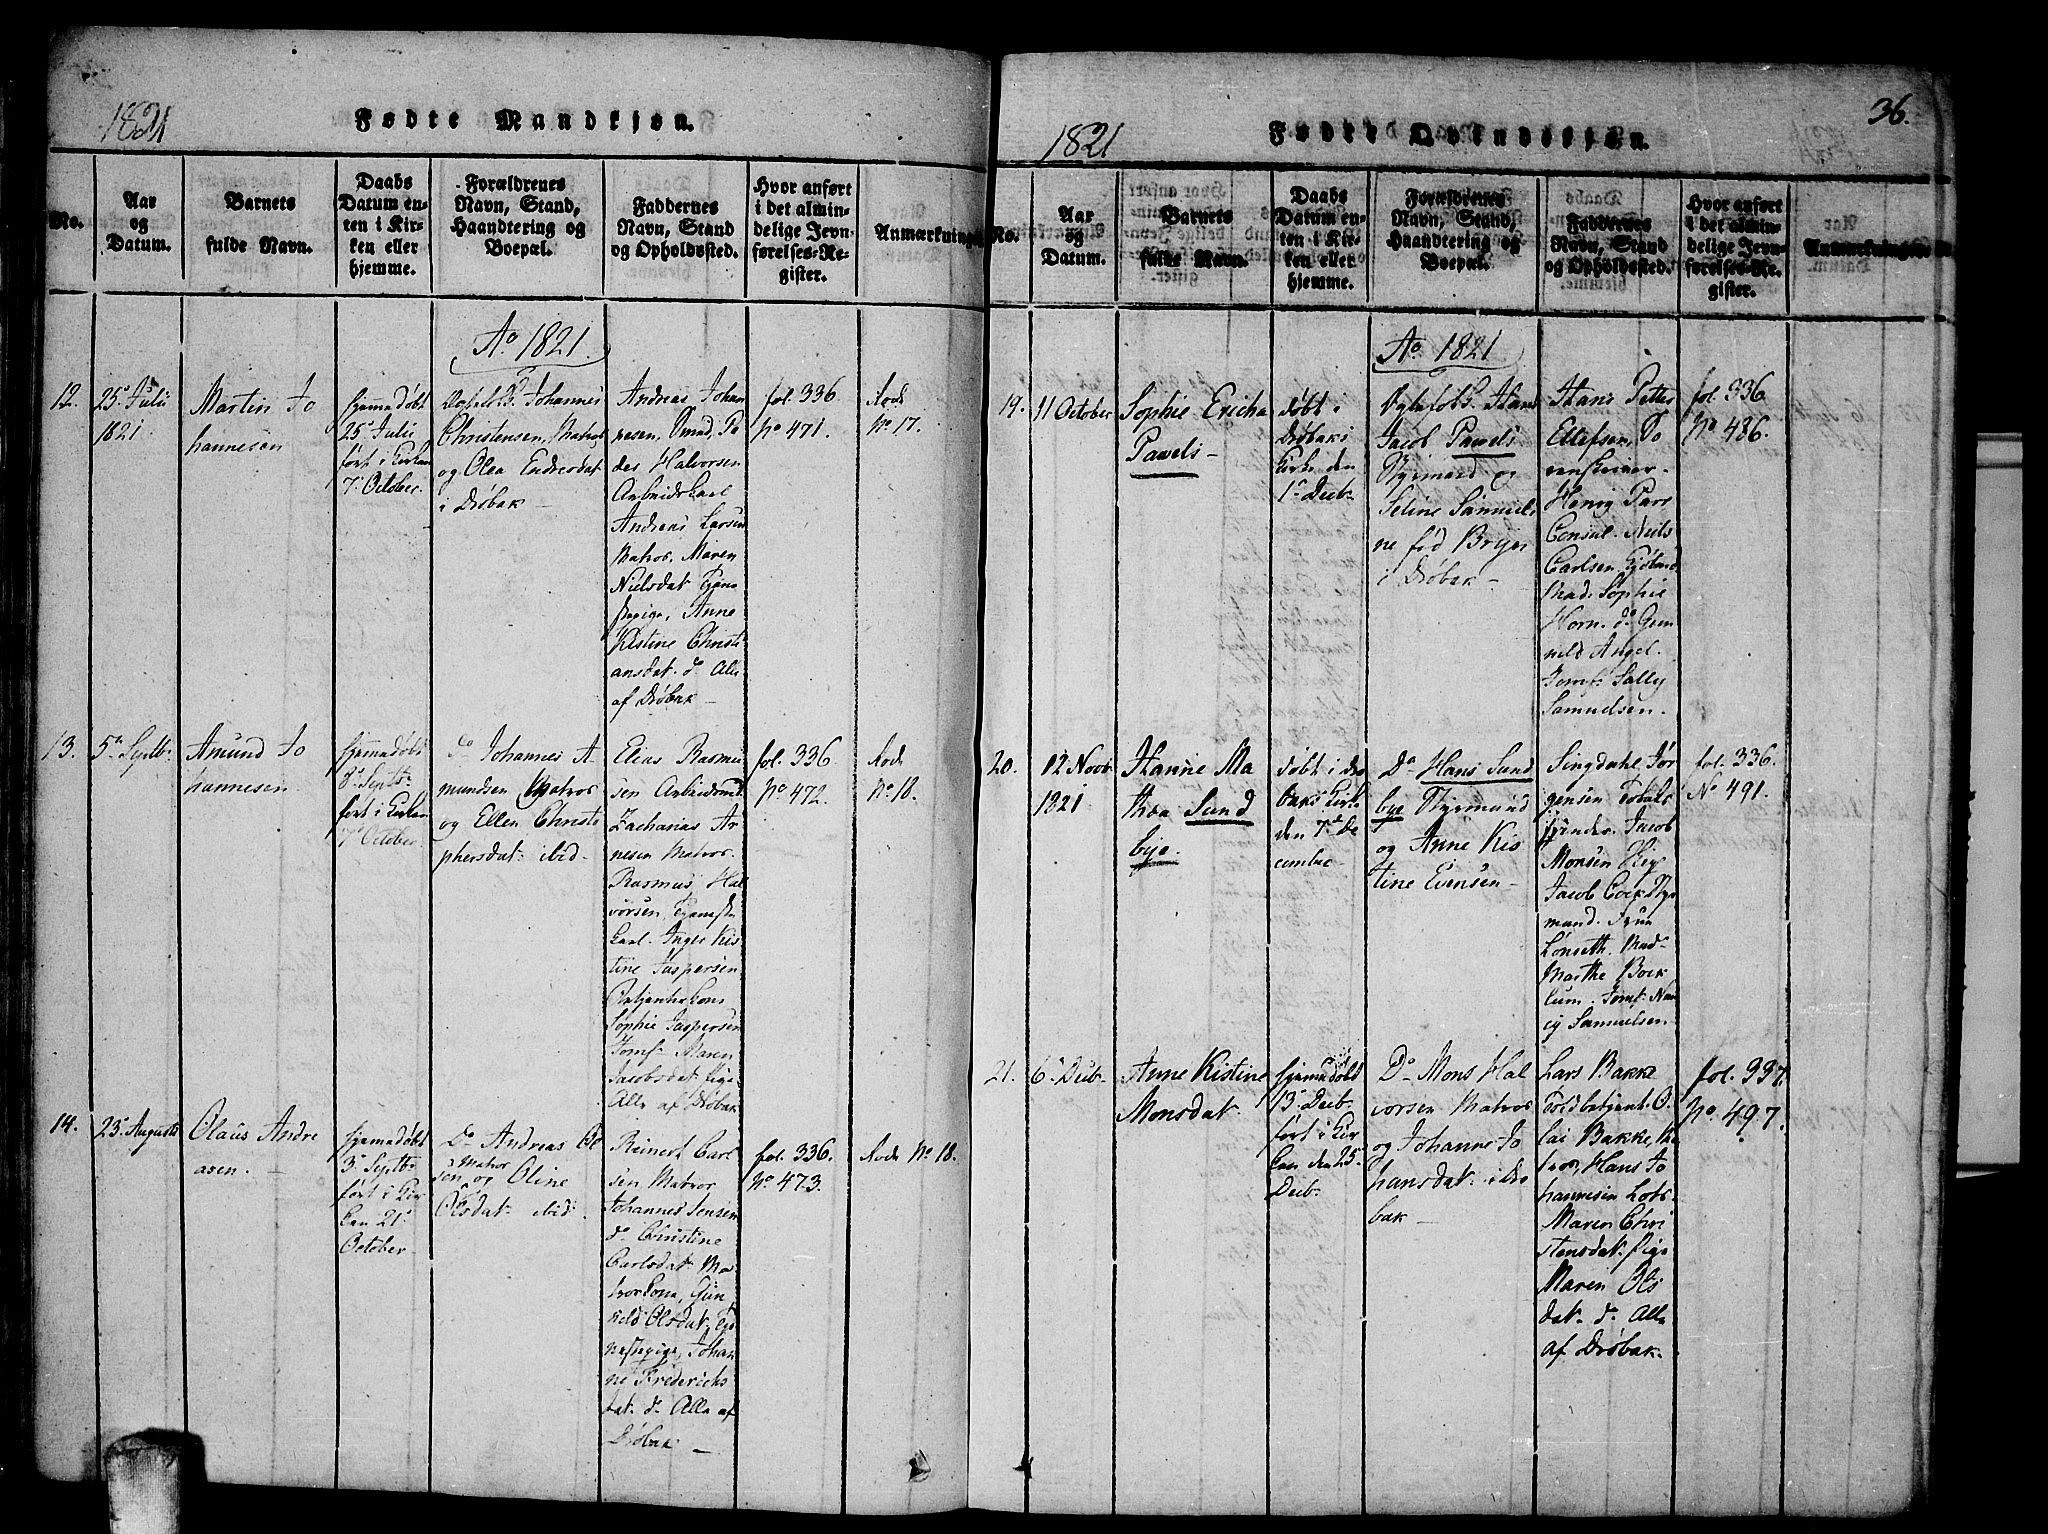 1821
Fødte Mandkjøn.
No.
Aar
og
Datum.
Barnets
fulde Navn.
Daabs
Datum en-
ten i Kir-
ken eller
hjemme.
Forældrenes
Navn, Stand,
Haandtering og
Boepæl.
Faddernes
Navn, Stand
og Opholdssted.
Hvor anført
i det almin-
delige Jevn-
førelses-Re-
gister.
Anmærkninger
Ao 1821.
12.
25 Julii
1821.
Martin Jo
hannesen
hjemmedøbt
25 Julii
ført i Kirken
7 October.
Johannes
Christensen, Matros
og Olea Endresdat
i Drøbak
Andreas Johan
nesen, Smed, Pe
der Halvorsen
Arbeidskarl
Andreas Larsen
Matros. Maren
Nielsdat Tjene
stepige, Anne
Kistine Christi
ansdat. do Alle
af Drøbak
fol. 336
No 471.
Rode
No 17.
13.
5 Septb.
Amund Jo
hannesen
hjemmedøbt
8 Septb.
ført i Kirken
7 October.
do Johannes A
mundsen Matros
og Ellen Christo
phersdat ibid
Elias Rasmu
sen Arbeidsmd
Zacharias Ar
nesen Matros.
Rasmus Hal
vorsen, Tjeneste
karl. Inger Kis
tine Jaspersen
Sophie Jaspersen
Jomf. Maren
Jacobsdat Pige
Alle af Drøbak
fol. 336
No 472.
Rode
No 18.
14.
23 Augusti
Olaus Andre
asen.
hjemmedøbt
3 Septb.
ført i Kir
ken 21
October.
Do Andreas Ol
sen Matros og Oline
Olsdat ibid.
Reinert Carl
sen Matros
Johannes Jensen
do Christine
Carlsdat. Ma
troskone, Gun
neld Olsdat. Tje
nestepige, Johan
ne Frederichs
dat. do Alle af
Drøbak
fol. 336.
No. 473.
Rode No 18.
36.
1821
Fødte Qvindekjøn.
No.
Aar
og
Datum.
Barnets
fulde Navn.
Daabs
Datum en-
ten i Kir-
ken eller
hjemme.
Forældrenes
Navn, Stand,
Haandtering og
Boepæl.
Faddernes
Navn, Stand
og Opholdssted.
Hvor anført
i det almin-
delige Jevn-
førelses-Re-
gister.
Anmærkninger.
Ao 1821
19.
11 October
Sophie Ericha
Pavels
døbt i
Drøbaks
Kirke den
1 Decb.
Hans
Jacob Pavels
Styrmand og
Seline Samueli
ne fød Bryn
i Drøbak
Hans Petter
Ellefsen, So
renskriver
Henry Parr
Consul. Niels
Carlsen Kjøbmd
Mad. Sophie
Horn. do Gun
neld Angel.
Jomf. Sally
Samuelsen.
fol. 336
No 486.
20.
12 Novb.
1821
Hanne Ma
thea Sund
bye.
døbt i Drø
baks Kirke
den 7de De
cember
Do Hans Sund
bye Styrmand
og Anne Kis
tine Evensen
Singdahl Jør
gensen Tobaks
spinder. Jacob
Monsen
Jacob Cock Styr
mand. Frue
Lønseth. Mad.
Marthe Bock
lum. Jomf. Nan
cy Samuelsen
fol. 336.
No 491.
21.
6 Decb.
Anne Kistine
Monsdat.
hjemmedøbt
13 Decb.
ført i Kir
ken den 25
Decb.
Do Mons Hal
vorsen Matros
og Johanne Jo
hansdat. i Drø
bak
Lars Bakke
Toldbetjent. O
lai Bakke, Ma
tros, Hans Jo
hannesen Lods
Maren Chri
stensdat. Pige
Maren Ols
dat. do Alle
af Drøbak.
fol. 337.
No. 497.